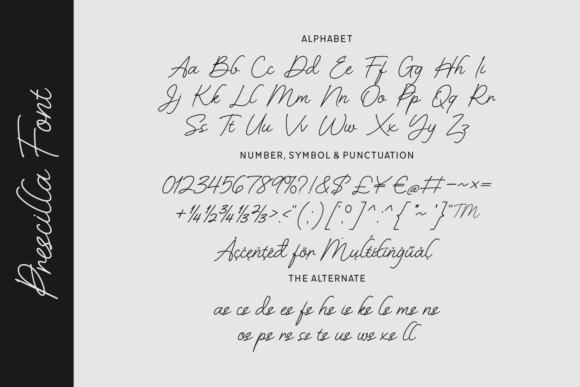 Prescilla Font
ALPHABET
Aa Bb Cc Dd Ee Ff Gg Hh Ii
Jj Kk Ll Mm Nn Oo Pp Qq Rr
Ss Tt Uu Vv Ww Xx Yy Zz
NUMBER, SYMBOL & PUNCTUATION
0123456789%?!&$ £ ¥ €@#-~×=
+¼½¾⅓⅔><"(;)[°,°]^:^{"~'}"TM
Accented for Multilingual
THE ALTERNATE
ae ce de ee fe he ie ke le me ne
oe pe re se te ue we xe ll